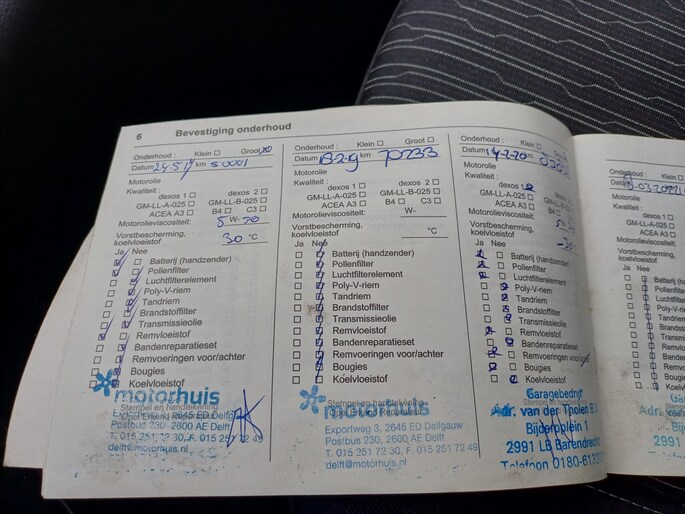 6 Bevestiging onderhoud
Onderhoud : Klein Groot
Datum km 50001
Motorolie
Kwaliteit : dexos 1 dexos 2
GM-LL-A-025 GM-LL-B-025
ACEA A3 B4 C3
Motorolieviscositeit: 5 W- 30
Vorstbescherming,
koelvloeistof 30 °C
Ja Nee
Batterij (handzender)
Pollenfilter
Luchtfilterelement
Poly-V-riem
Tandriem
Brandstoffilter
Transmissieolie
Remvloeistof
Bandenreparatieset
Remvoeringen voor/achter
Bougies
Koelvloeistof
motorhuis
Stempel en handtekening
2645 ED Delfgauw
Postbus 230, 2600 AE Delft
T. 015 251 72 30, F. 015 251 72 49
delft@motorhuis.nl
Onderhoud : Klein Groot
Datum 18-2-19 km 70233
Motorolie
Kwaliteit : dexos 1 dexos 2
GM-LL-A-025 GM-LL-B-025
ACEA A3 B4 C3
Motorolieviscositeit: W-
Vorstbescherming,
koelvloeistof °C
Ja Nee
Batterij (handzender)
Pollenfilter
Luchtfilterelement
Poly-V-riem
Tandriem
Brandstoffilter
Transmissieolie
Remvloeistof
Bandenreparatieset
Remvoeringen voor/achter
Bougies
Koelvloeistof
Stempel en handtekening
motorhuis
Exportweg 3, 2645 ED Delfgauw
Postbus 230, 2600 AE Delft
T. 015 251 72 30, F. 015 251 72 49
delft@motorhuis.nl
Onderhoud : Klein
Datum 14-2-20 km
Motorolie
Kwaliteit : dexos 1
GM-LL-A-025
ACEA A3
Motorolieviscositeit:
Vorstbescherming,
koelvloeistof
Ja Nee
Batterij (handzender)
Pollenfilter
Luchtfilterelement
Poly-V-riem
Tandriem
Brandstoffilter
Transmissieolie
Remvloeistof
Bandenreparatieset
Remvoeringen voor/
Bougies
Koelvloeistof
Garagebedrijf
Adr. van der Tholen B.
Bijdorpplein 1
2991 LB Barendrecht
Telefoon 0180-613
Onderhoud :
Motorolie
Kwaliteit :
dexos 1
GM-LL-A-025
ACEA A3
Motorolieviscositeit:
Vorstbescherming,
koelvloeistof
Ja Nee
Batterij
Pollenfilter
Tandriem
Adr. van